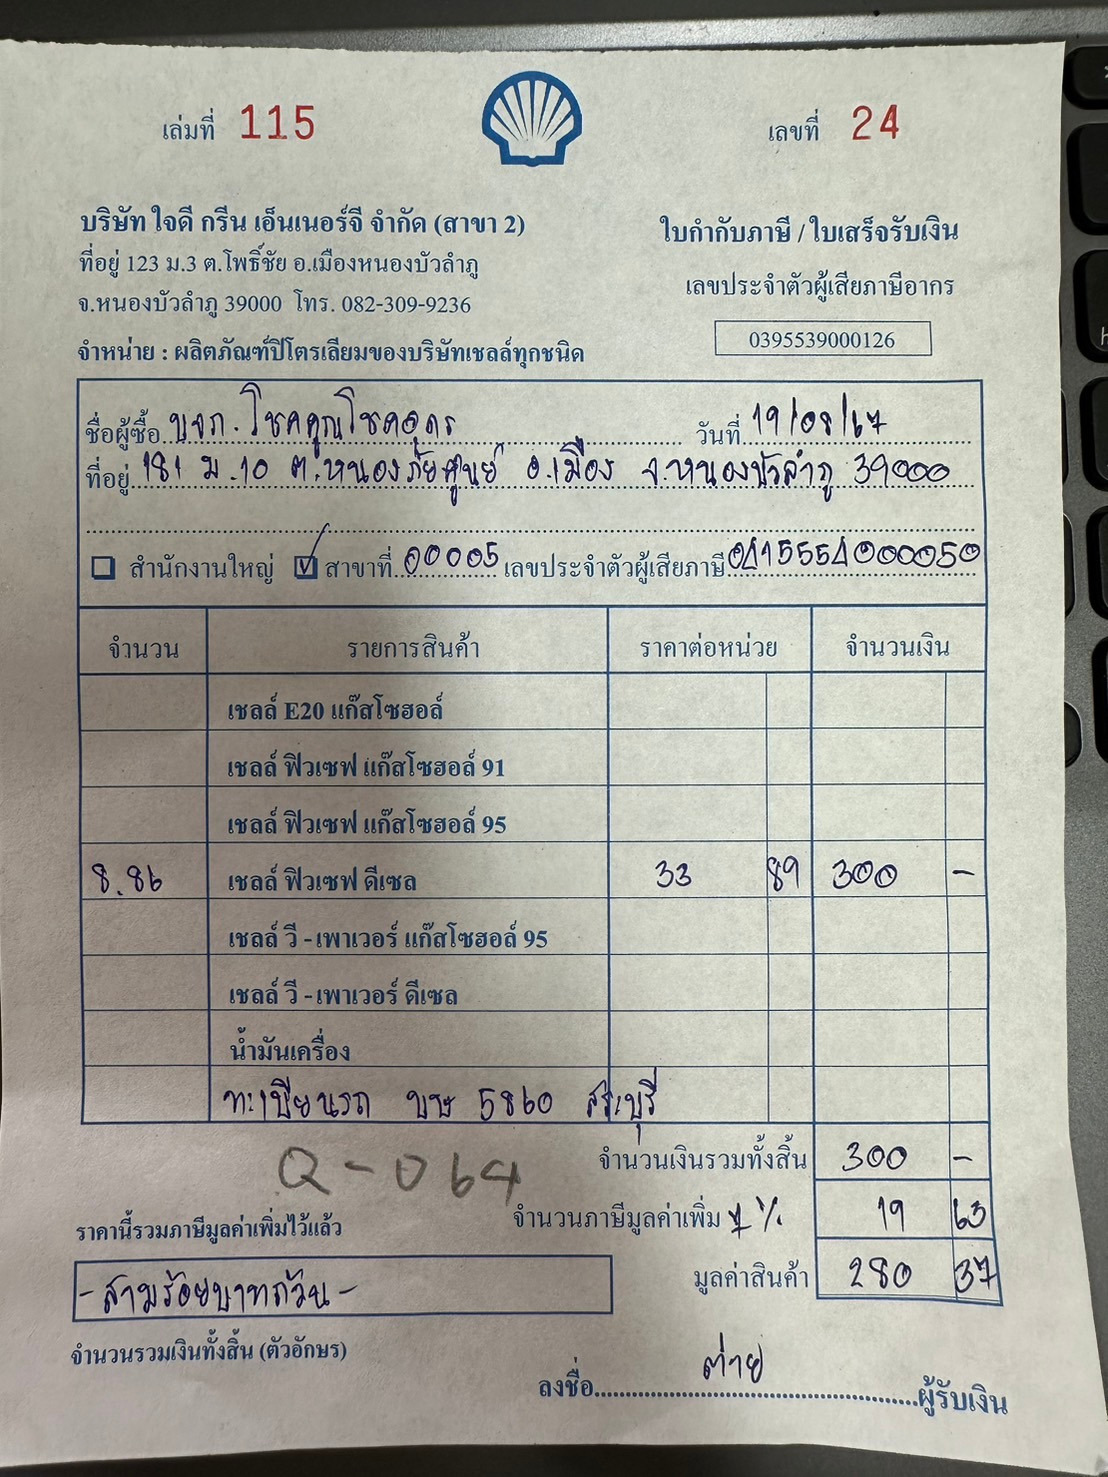 เล่มที่ 115
เลขที่ 24
บริษัท ใจดี กรีน เอ็นเนอร์จี จำกัด (สาขา 2)
ที่อยู่ 123 ม.3 ต.โพธิ์ชัย อ.เมืองหนองบัวลำภู
จ.หนองบัวลำภู 39000 โทร. 082-309-9236
จำหน่าย : ผลิตภัณฑ์ปิโตรเลียมของบริษัทเชลล์ทุกชนิด
ใบกำกับภาษี / ใบเสร็จรับเงิน
เลขประจำตัวผู้เสียภาษีอากร
0395539000126
ชื่อผู้ซื้อ บจก. โชคคูณโชคอุดร วันที่ 19/08/67
ที่อยู่ 181 ม.10 ต.หนองภัยศูนย์ อ.เมือง จ.หนองบัวลำภู 39000
สำนักงานใหญ่ ✓ สาขาที่ 00005 เลขประจำตัวผู้เสียภาษี 0415554000050
จำนวน รายการสินค้า ราคาต่อหน่วย จำนวนเงิน
เชลล์ E20 แก๊สโซฮอล์
เชลล์ ฟิวเซฟ แก๊สโซฮอล์ 91
เชลล์ ฟิวเซฟ แก๊สโซฮอล์ 95
8.86 เชลล์ ฟิวเซฟ ดีเซล 33 89 300 -
เชลล์ วี - เพาเวอร์ แก๊สโซฮอล์ 95
เชลล์ วี - เพาเวอร์ ดีเซล
น้ำมันเครื่อง
ทะเบียนรถ บษ 5860 สระบุรี
จำนวนเงินรวมทั้งสิ้น 300 -
Q-064
ราคานี้รวมภาษีมูลค่าเพิ่มไว้แล้ว
จำนวนภาษีมูลค่าเพิ่ม 7 % 19 63
มูลค่าสินค้า 280 37
- สามร้อยบาทถ้วน -
จำนวนรวมเงินทั้งสิ้น (ตัวอักษร)
ลงชื่อ ต่าย ผู้รับเงิน